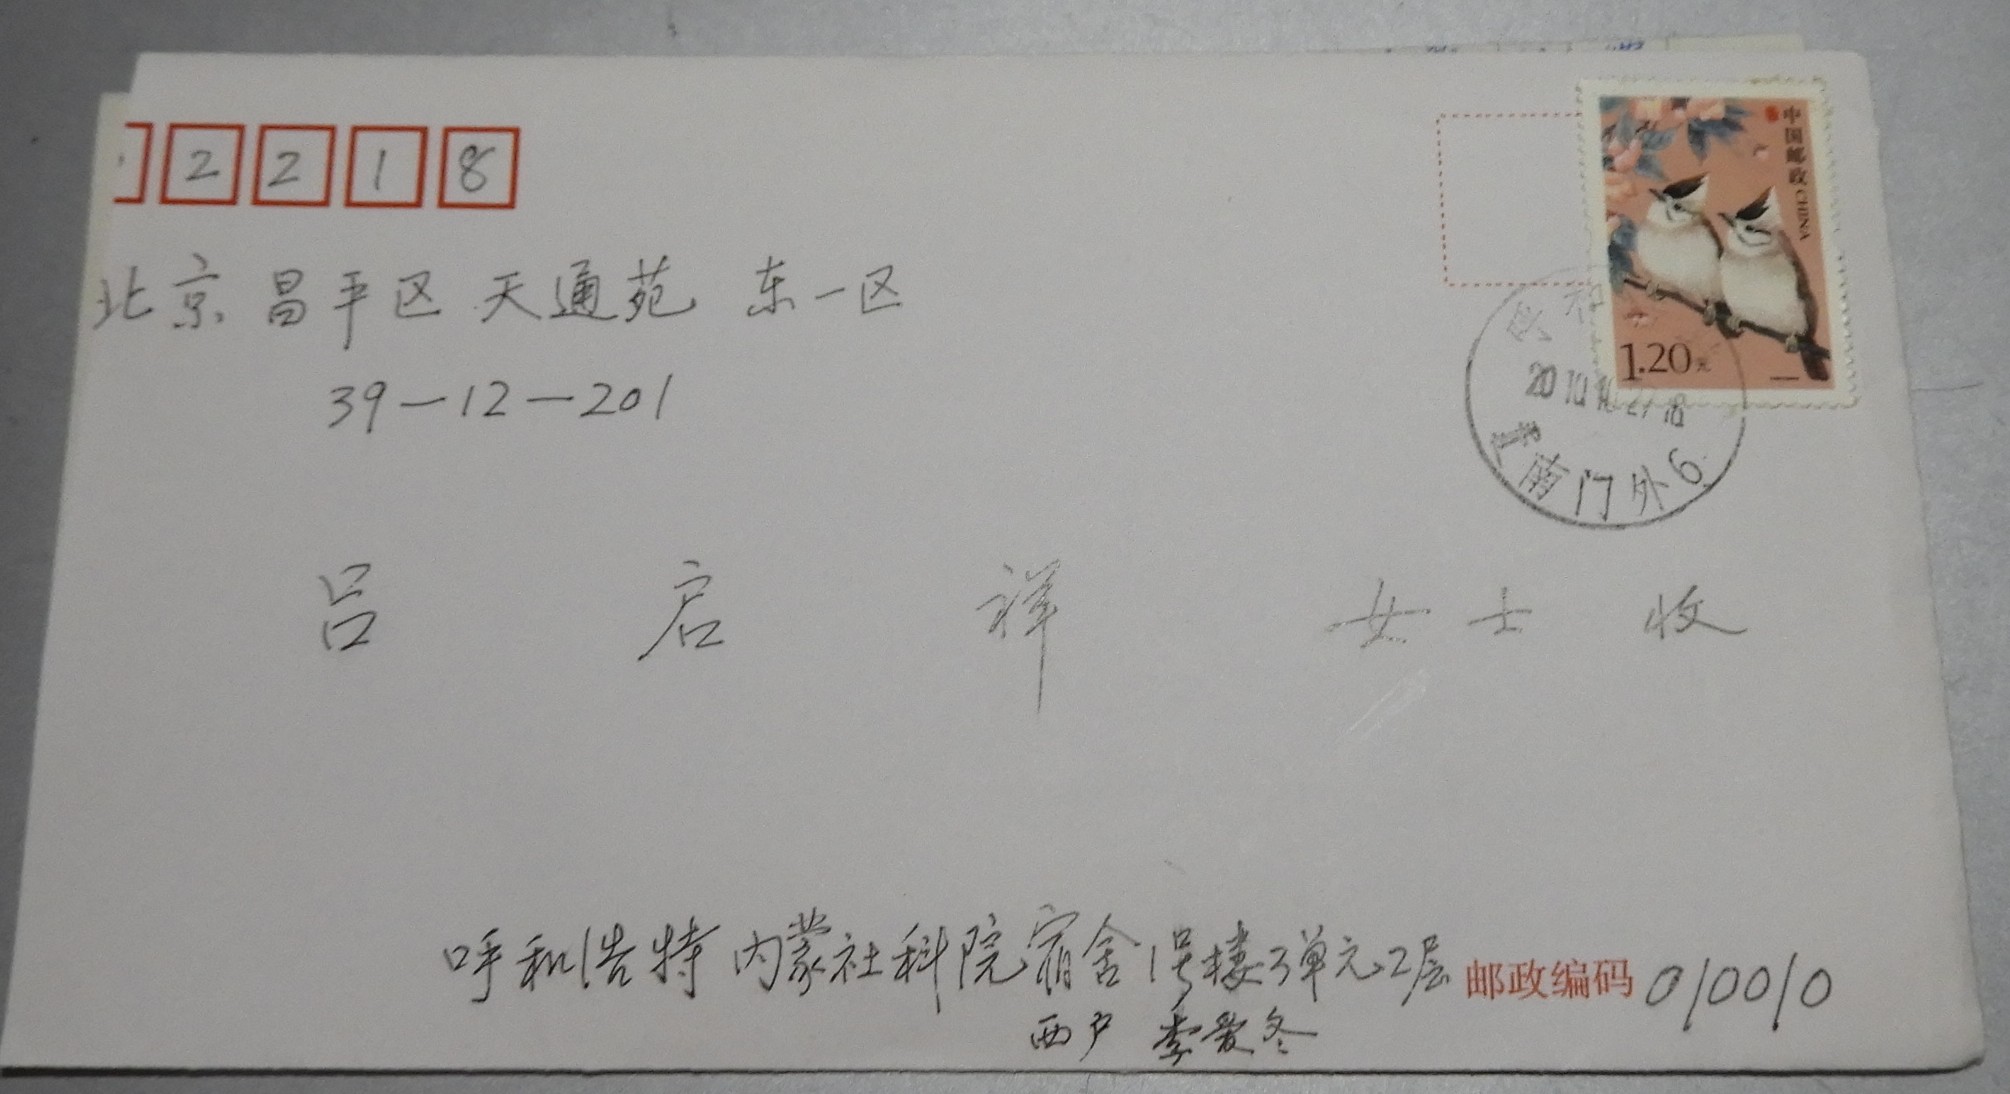 2218
中国邮政 CHINA
1.20元
北京 昌平区 天通苑 东一区
39-12-201
南门外6
吕启祥 女士 收
呼和浩特 内蒙社科院宿舍1号楼3单元2层
邮政编码 010010
西户 李爱冬